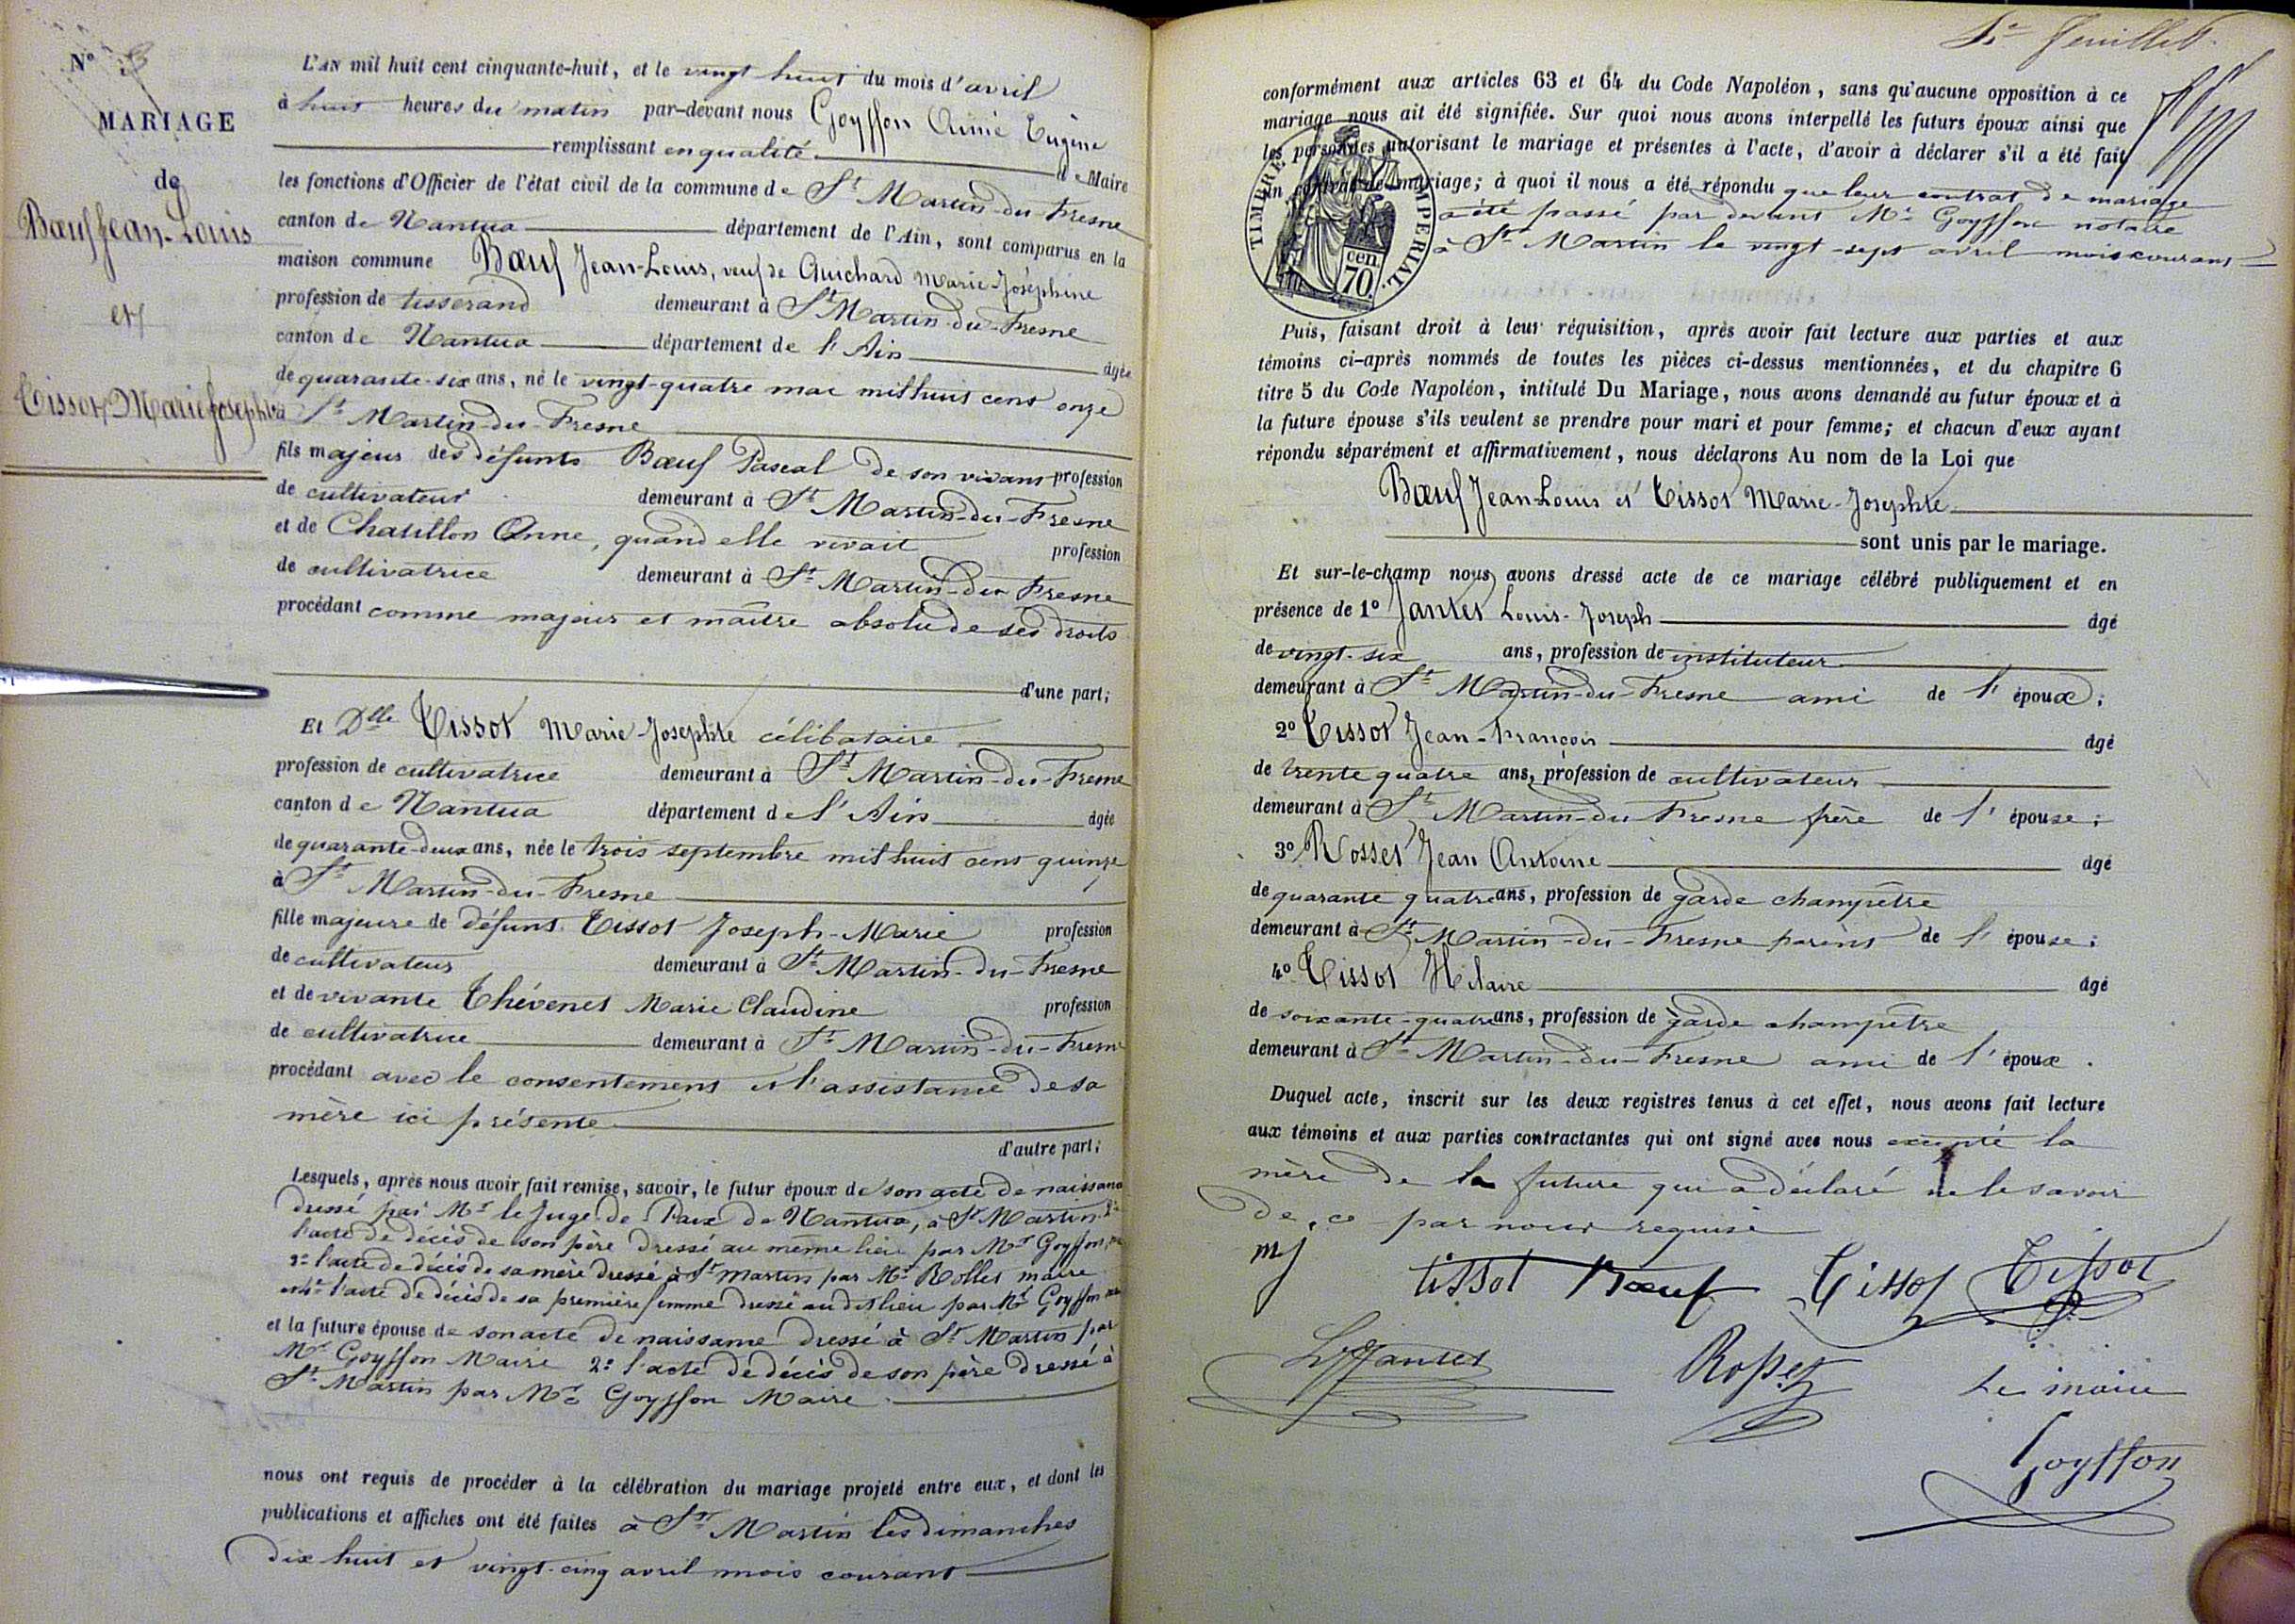 N° 3
MARIAGE
de
Bœuf Jean-Louis
et
Tissot Marie Josephte
L'AN mil huit cent cinquante-huit, et le vingt huit du mois d'avril
à huit heures du matin par-devant nous Goyffon Aimé Eugène
remplissant en qualité de Maire
les fonctions d'Officier de l'état civil de la commune de St Martin-du-Fresne
canton de Nantua département de l'Ain, sont comparus en la
maison commune Bœuf Jean-Louis, veuf de Guichard Marie-Joséphine
profession de tisserand demeurant à St Martin-du-Fresne
canton de Nantua département de l'Ain agée
de quarante-six ans, né le vingt-quatre mai mil huit cent onze
à St Martin-du-Fresne
fils majeur des défunts Bœuf Pascal de son vivant profession
de cultivateur demeurant à St Martin-du-Fresne
et de Chatillon Anne, quand elle vivait profession
de cultivatrice demeurant à St Martin-du-Fresne
procédant comme majeur et maître absolu de ses droits
d'une part;
Et Dlle Tissot Marie-Josephte célibataire
profession de cultivatrice demeurant à St Martin-du-Fresne
canton de Nantua département de l'Ain agée
de quarante-deux ans, née le trois septembre mil huit cent quinze
à St Martin-du-Fresne
fille majeure de défunt Tissot Joseph-Marie profession
de cultivateur demeurant à St Martin-du-Fresne
et de vivante Thévenet Marie Claudine profession
de cultivatrice demeurant à St Martin-du-Fresne
procédant avec le consentement et l'assistance de sa
mère ici présente
d'autre part;
Lesquels, après nous avoir fait remise, savoir, le futur époux de son acte de naissance
dressé par Mr le Juge de Paix de Nantua, à St Martin 2°
l'acte de décès de son père dressé au même lieu par Mr Goyffon,
3° l'acte de décès de sa mère dressé à St Martin par Mr Rollet maire
et 4° l'acte de décès de sa première femme dressé au dit lieu par Mr Goyffon
et la future épouse de son acte de naissance dressé à St Martin par
Mr Goyffon Maire 2° l'acte de décès de son père dressé à
St Martin par Mr Goyffon Maire
nous ont requis de procéder à la célébration du mariage projeté entre eux, et dont les
publications et affiches ont été faites à St Martin les dimanches
dix huit et vingt-cinq avril mois courant
feuillet
conformément aux articles 63 et 64 du Code Napoléon, sans qu'aucune opposition à ce
mariage nous ait été signifiée. Sur quoi nous avons interpellé les futurs époux ainsi que
les personnes autorisant le mariage et présentes à l'acte, d'avoir à déclarer s'il a été fait
un contrat de mariage; à quoi il nous a été répondu que leur contrat de mariage
a été passé par devant Me Goyffon notaire
à St Martin le vingt-sept avril mois courant
TIMBRE IMPERIAL.
cen.
70.
Puis, faisant droit à leur réquisition, après avoir fait lecture aux parties et aux
témoins ci-après nommés de toutes les pièces ci-dessus mentionnées, et du chapitre 6
titre 5 du Code Napoléon, intitulé Du Mariage, nous avons demandé au futur époux et à
la future épouse s'ils veulent se prendre pour mari et pour femme; et chacun d'eux ayant
répondu séparément et affirmativement, nous déclarons Au nom de la Loi que
Bœuf Jean-Louis et Tissot Marie-Josephte
sont unis par le mariage.
Et sur-le-champ nous avons dressé acte de ce mariage célébré publiquement et en
présence de 1° Jantet Louis-Joseph agé
de vingt-six ans, profession de instituteur
demeurant à St Martin-du-Fresne ami de l'époux;
2° Tissot Jean-François agé
de trente quatre ans, profession de cultivateur
demeurant à St Martin-du-Fresne frère de l'épouse;
3° Rosset Jean Antoine agé
de quarante quatre ans, profession de garde champêtre
demeurant à St Martin-du-Fresne parent de l'épouse;
4° Tissot Hilaire agé
de soixante-quatre ans, profession de garde champêtre
demeurant à St Martin-du-Fresne ami de l'époux.
Duquel acte, inscrit sur les deux registres tenus à cet effet, nous avons fait lecture
aux témoins et aux parties contractantes qui ont signé avec nous excepté la
mère de la future qui a déclaré ne le savoir
de ce par nous requise
mj tissot Bœuf Tissot Tissot
LJ Jantet Rosset Le maire
Goyffon